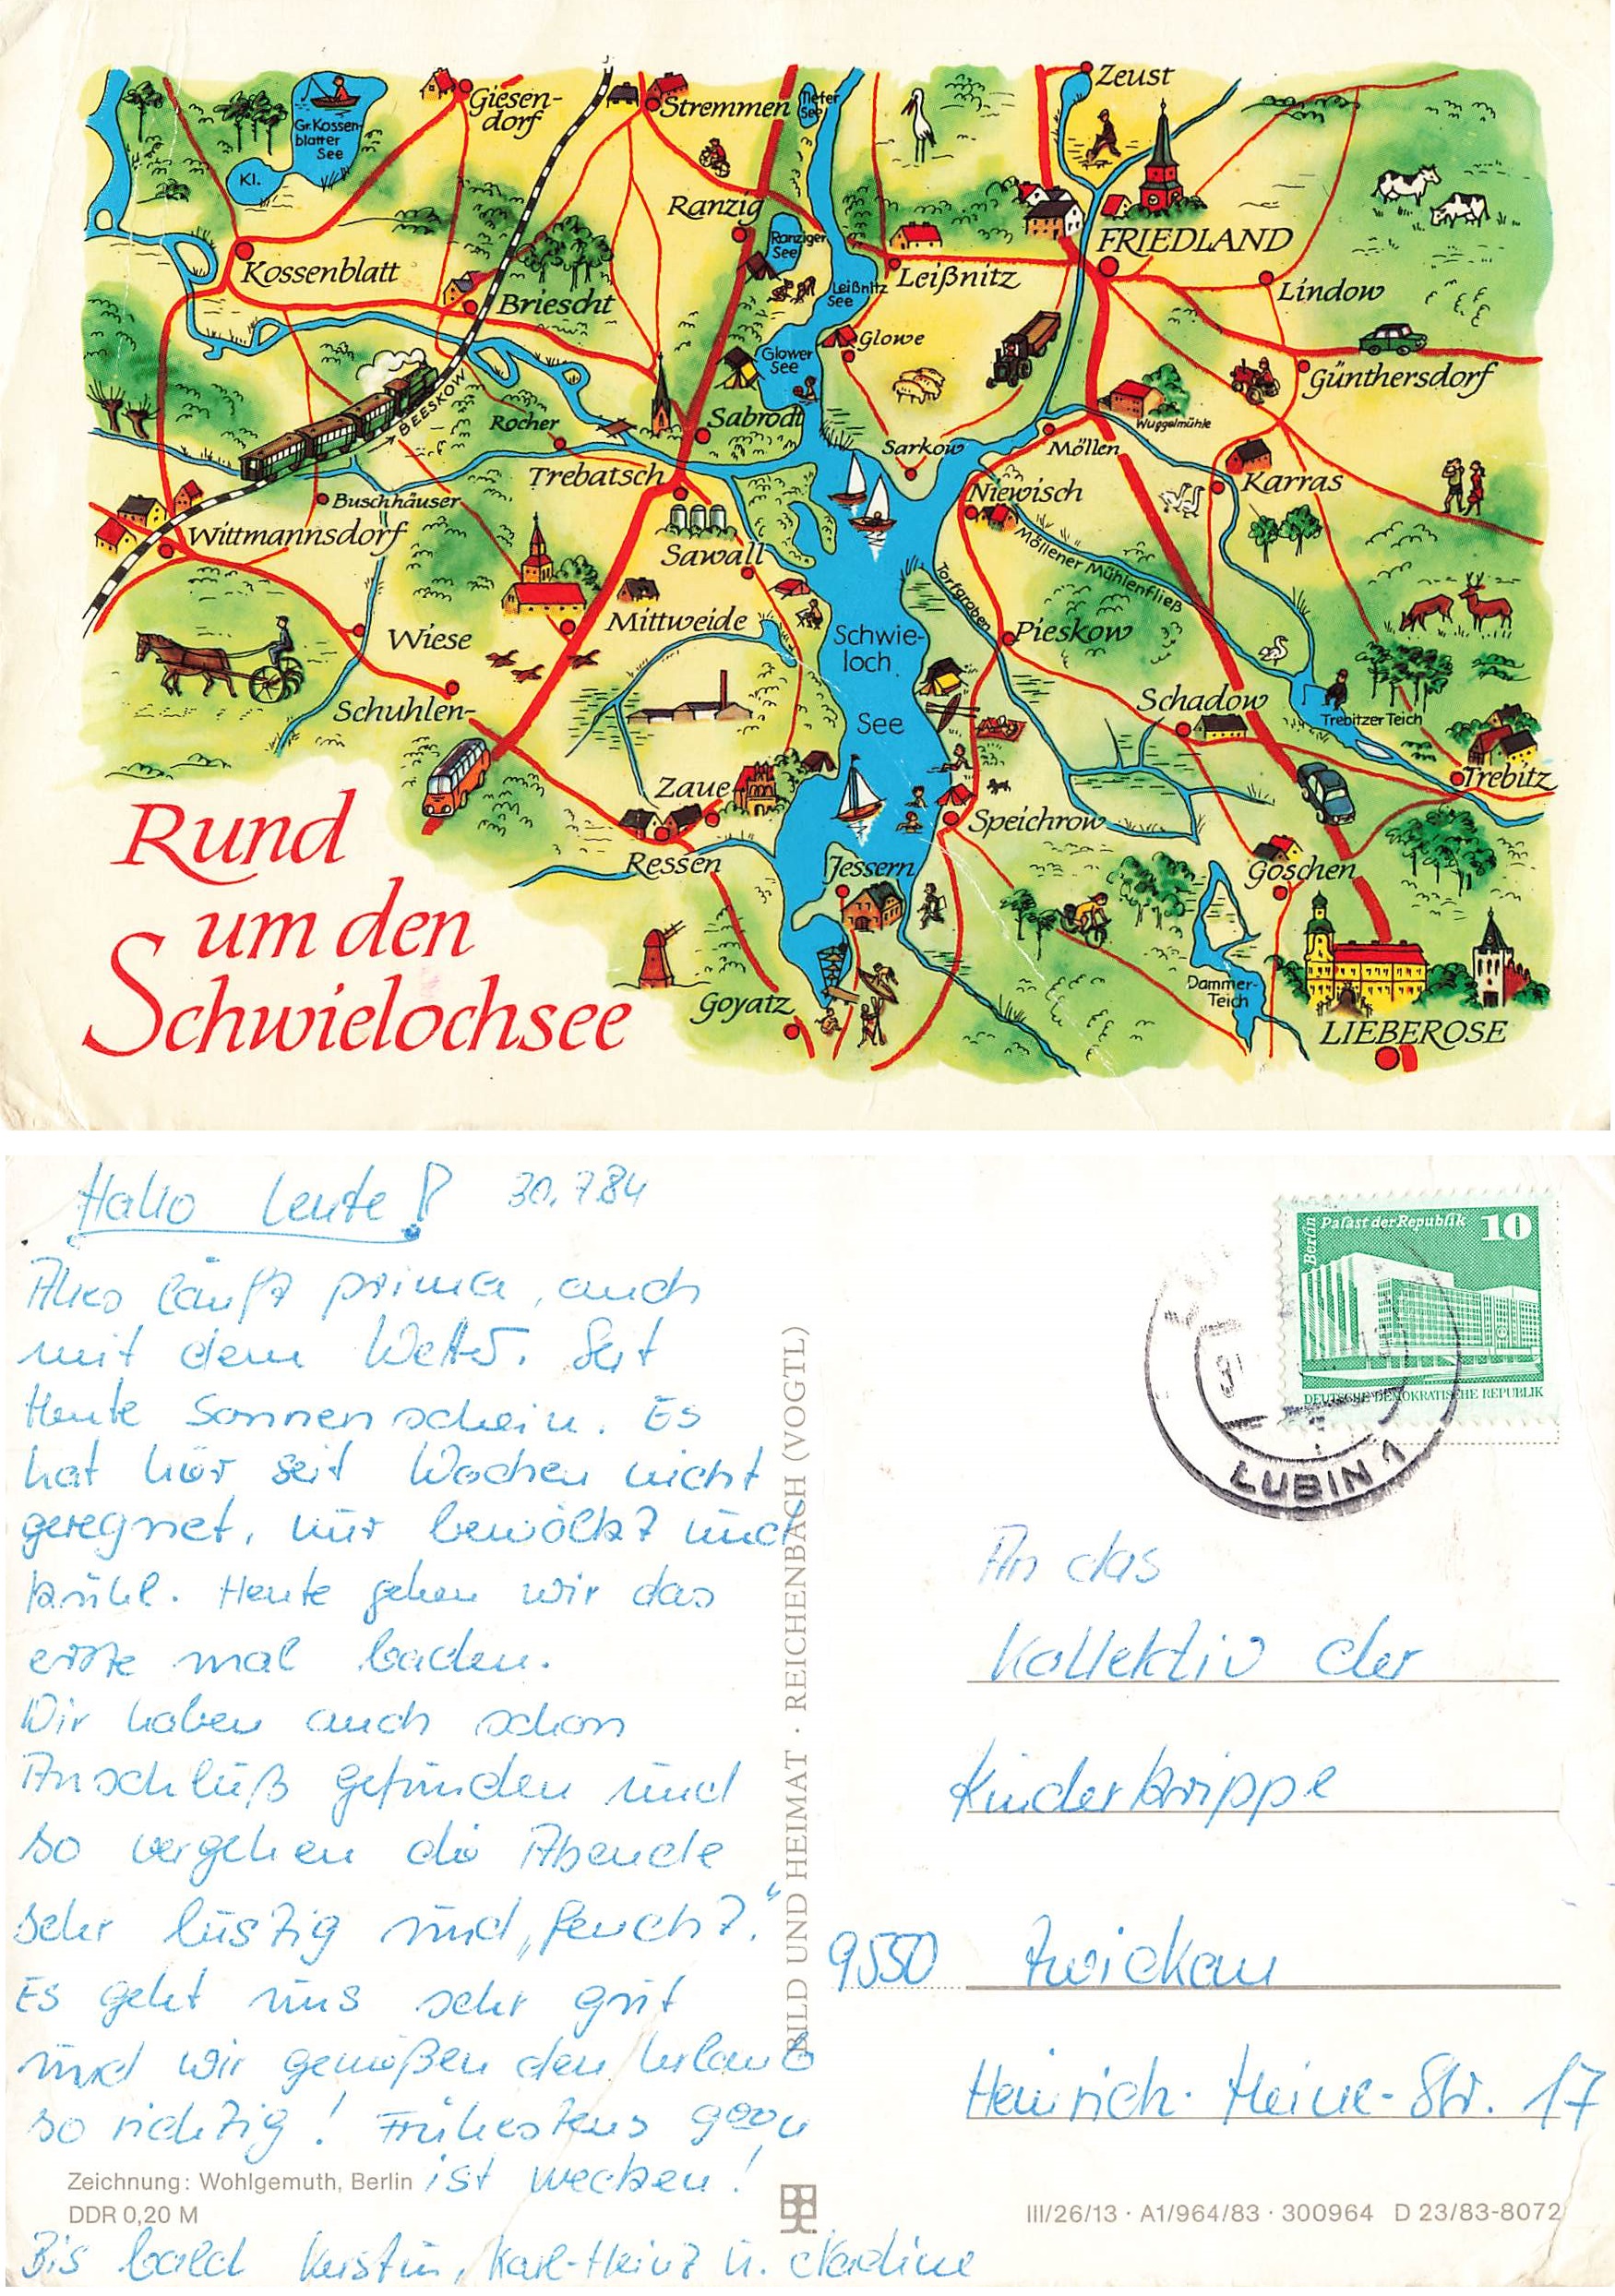 Zeust
Giesen-
dorf
Stremmen
Tiefer
See
Gr. Kossen-
blatter
See
Kl.
Ranzig
Ranziger
See
FRIEDLAND
Kossenblatt
Leißnitz
Leißnitz
See
Lindow
Briescht
Glowe
Glower
See
Günthersdorf
BEESKOW
Rocher
Sabrodt
Wuggelmühle
Sarkow
Möllen
Trebatsch
Niewisch
Karras
Buschhäuser
Wittmannsdorf
Sawall
Möllener Mühlenfließ
Torfgraben
Mittweide
Wiese
Schwie-
loch
See
Pieskow
Schuhlen-
Schadow
Trebitzer Teich
Trebitz
Zaue
Speichrow
Ressen
Jessern
Goschen
Dammer-
Teich
Goyatz
LIEBEROSE
Rund
um den
Schwielochsee
Hallo Leute! 30.7.84
Alles läuft prima, auch
mit dem Wetter. Seit
Heute Sonnenschein. Es
hat hier seit Wochen nicht
geregnet, nur bewölkt und
kühl. Heute gehen wir das
erste mal baden.
Wir haben auch schon
Anschluß gefunden und
so vergehen die Abende
sehr lustig und „feucht."
Es geht uns sehr gut
und wir genießen den Urlaub
so richtig! Frühestens 9⁰⁰ u
ist wecken!
Bis bald Kerstin, Karl-Heinz u. Nadine
Zeichnung: Wohlgemuth, Berlin
DDR 0,20 M
BILD UND HEIMAT · REICHENBACH (VOGTL)
Berlin
Palast der Republik 10
DEUTSCHE DEMOKRATISCHE REPUBLIK
LUBIN 1
An das
Kollektiv der
Kinderkrippe
9550 Zwickau
Heinrich-Heine-Str. 17
III/26/13 · A1/964/83 · 300964 D 23/83-8072